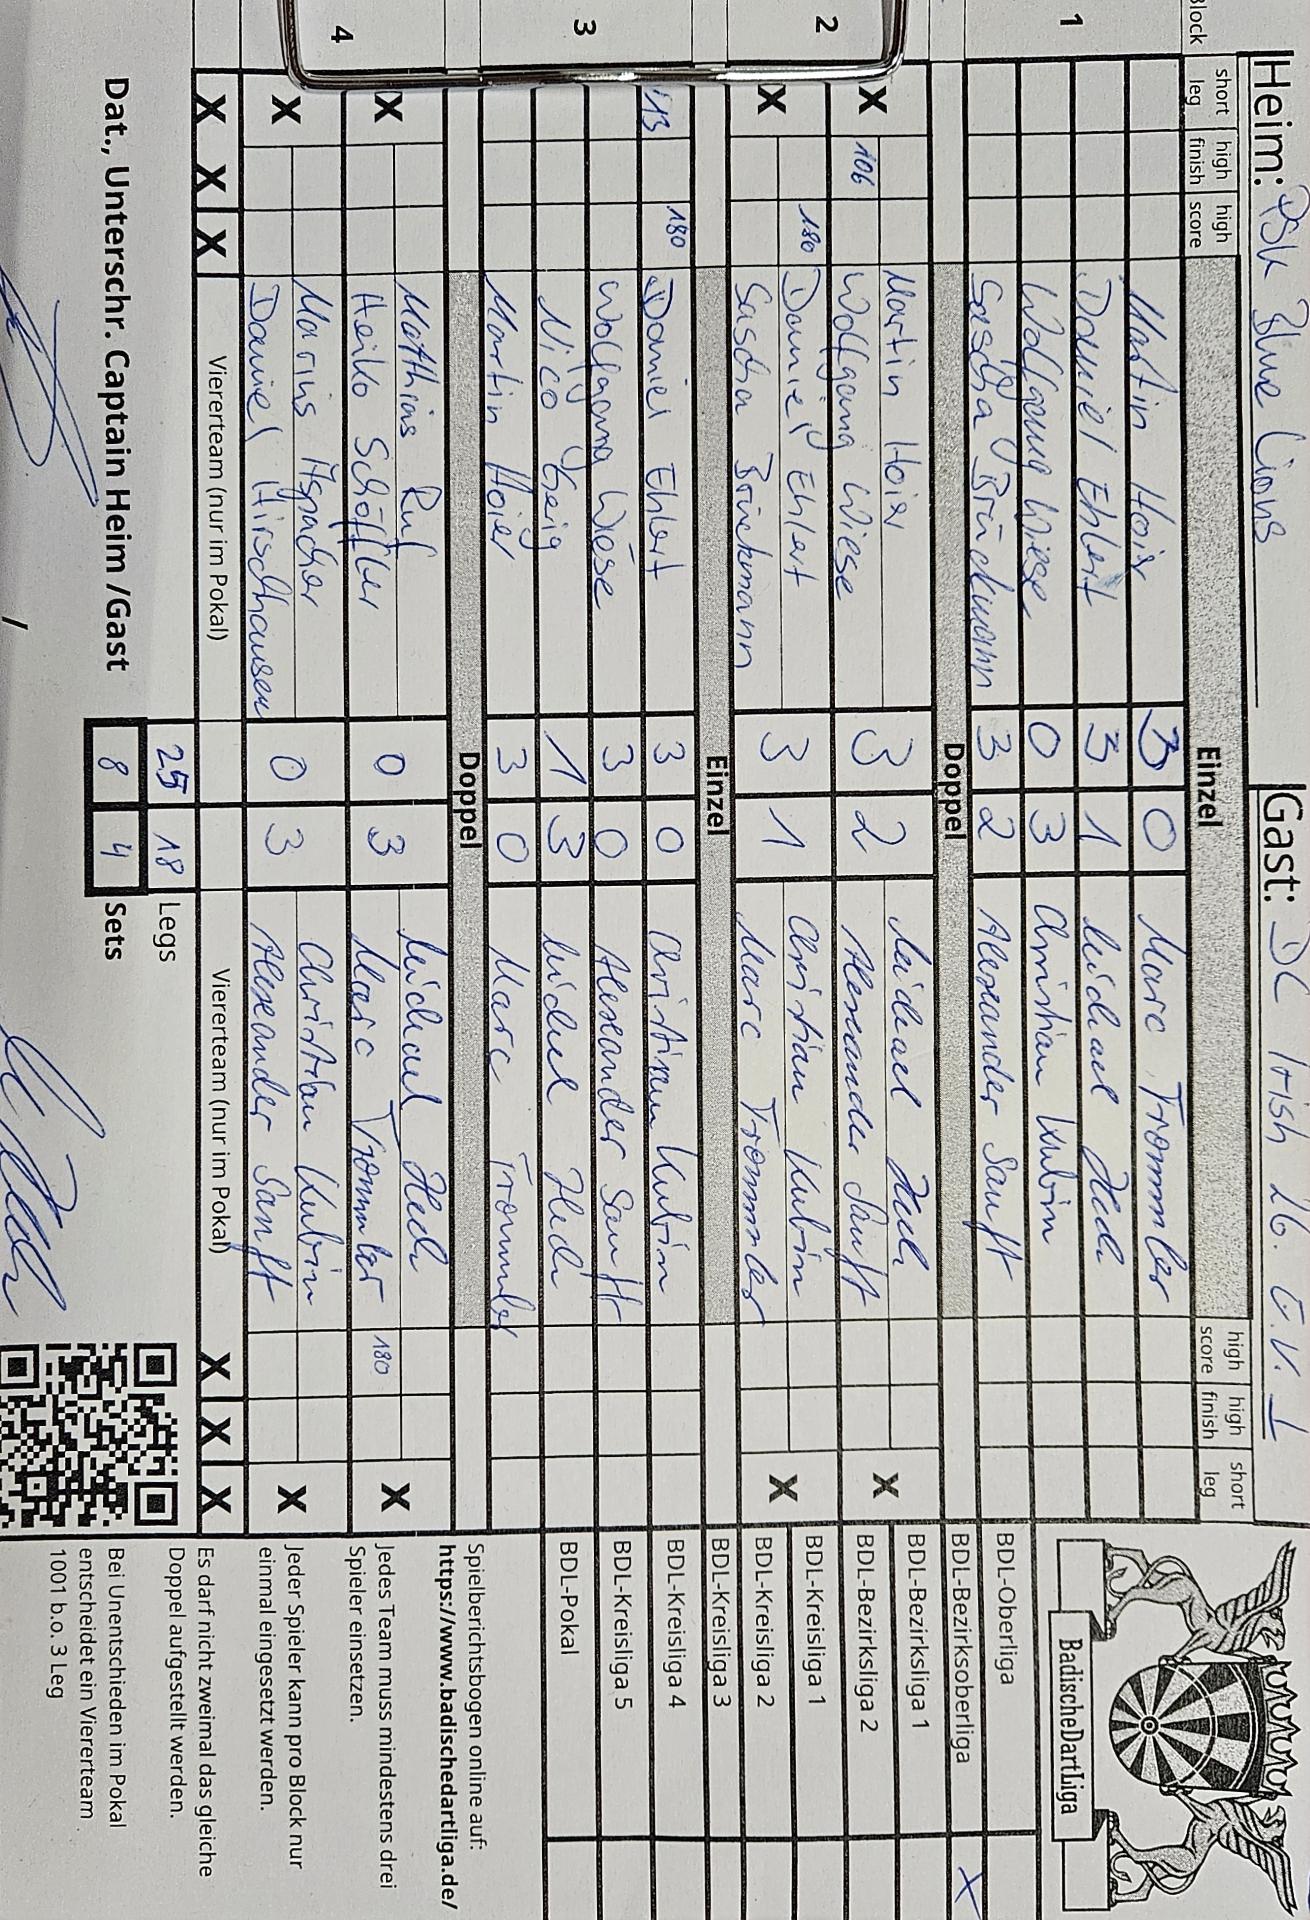 Heim: PSK Blue Lions Gast: DC Irish 26. e.V. I
Block short leg high finish high score Einzel high score high finish short leg
1
Martin Hoier 3 0 Marc Trommler
Daniel Ehlert 3 1 Michael Heck
Wolfgang Wiese 0 3 Christian Kubin
Sascha Brückmann 3 2 Alexander Sanft
Doppel
2
Martin Hoier Michael Heck
X 106 Wolfgang Wiese 3 2 Alexander Sanft X
180 Daniel Ehlert Christian Kubin
X Sascha Brückmann 3 1 Marc Trommler X
Einzel
3
13 180 Daniel Ehlert 3 0 Christian Kubin
Wolfgang Wiese 3 0 Alexander Sanft
Nico Geig 1 3 Michael Heck
Martin Hoier 3 0 Marc Trommler
Doppel
4
Matthias Ruf Michael Heck
X Heiko Schöffler 0 3 Marc Trommler 180 X
Marius Christian Kubin
X Daniel Hirschhausen 0 3 Alexander Sanft X
X X X Viererteam (nur im Pokal) Viererteam (nur im Pokal) X X X
25 18 Legs
Dat., Unterschr. Captain Heim /Gast 8 4 Sets
/
BadischeDartLiga
BDL-Oberliga
BDL-Bezirksoberliga X
BDL-Bezirksliga 1
BDL-Bezirksliga 2
BDL-Kreisliga 1
BDL-Kreisliga 2
BDL-Kreisliga 3
BDL-Kreisliga 4
BDL-Kreisliga 5
BDL-Pokal
Spielberichtsbogen online auf:
https://www.badischedartliga.de/
Jedes Team muss mindestens drei
Spieler einsetzen.
Jeder Spieler kann pro Block nur
einmal eingesetzt werden.
Es darf nicht zweimal das gleiche
Doppel aufgestellt werden.
Bei Unentschieden im Pokal
entscheidet ein Viererteam
1001 b.o. 3 Leg